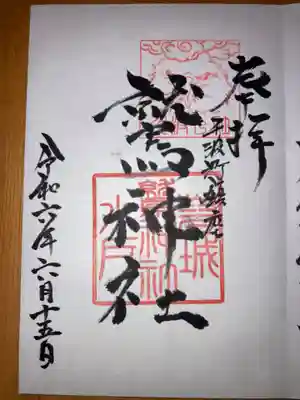 奉拝
千波町鎮座
鷲神社
茨城
鷲神社
水戸
令和六年六月十五日